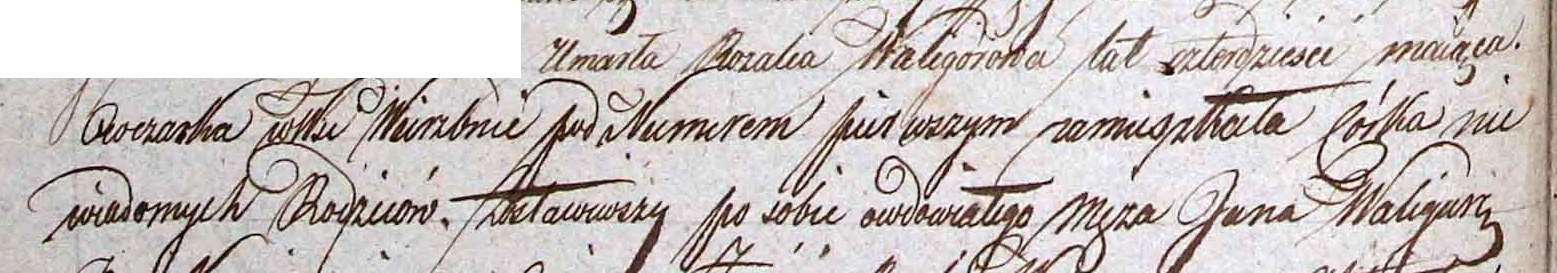 Umarła Rozalia Waligorowa lat czterdzieści maiąca.
Owczarka w Wsi Wierzbnie pod Numerem pierwszym zamieszkała Córka nie
wiadomych Rodziców. Zostawiwszy po sobie owdowiałego męża Jana Waligurę